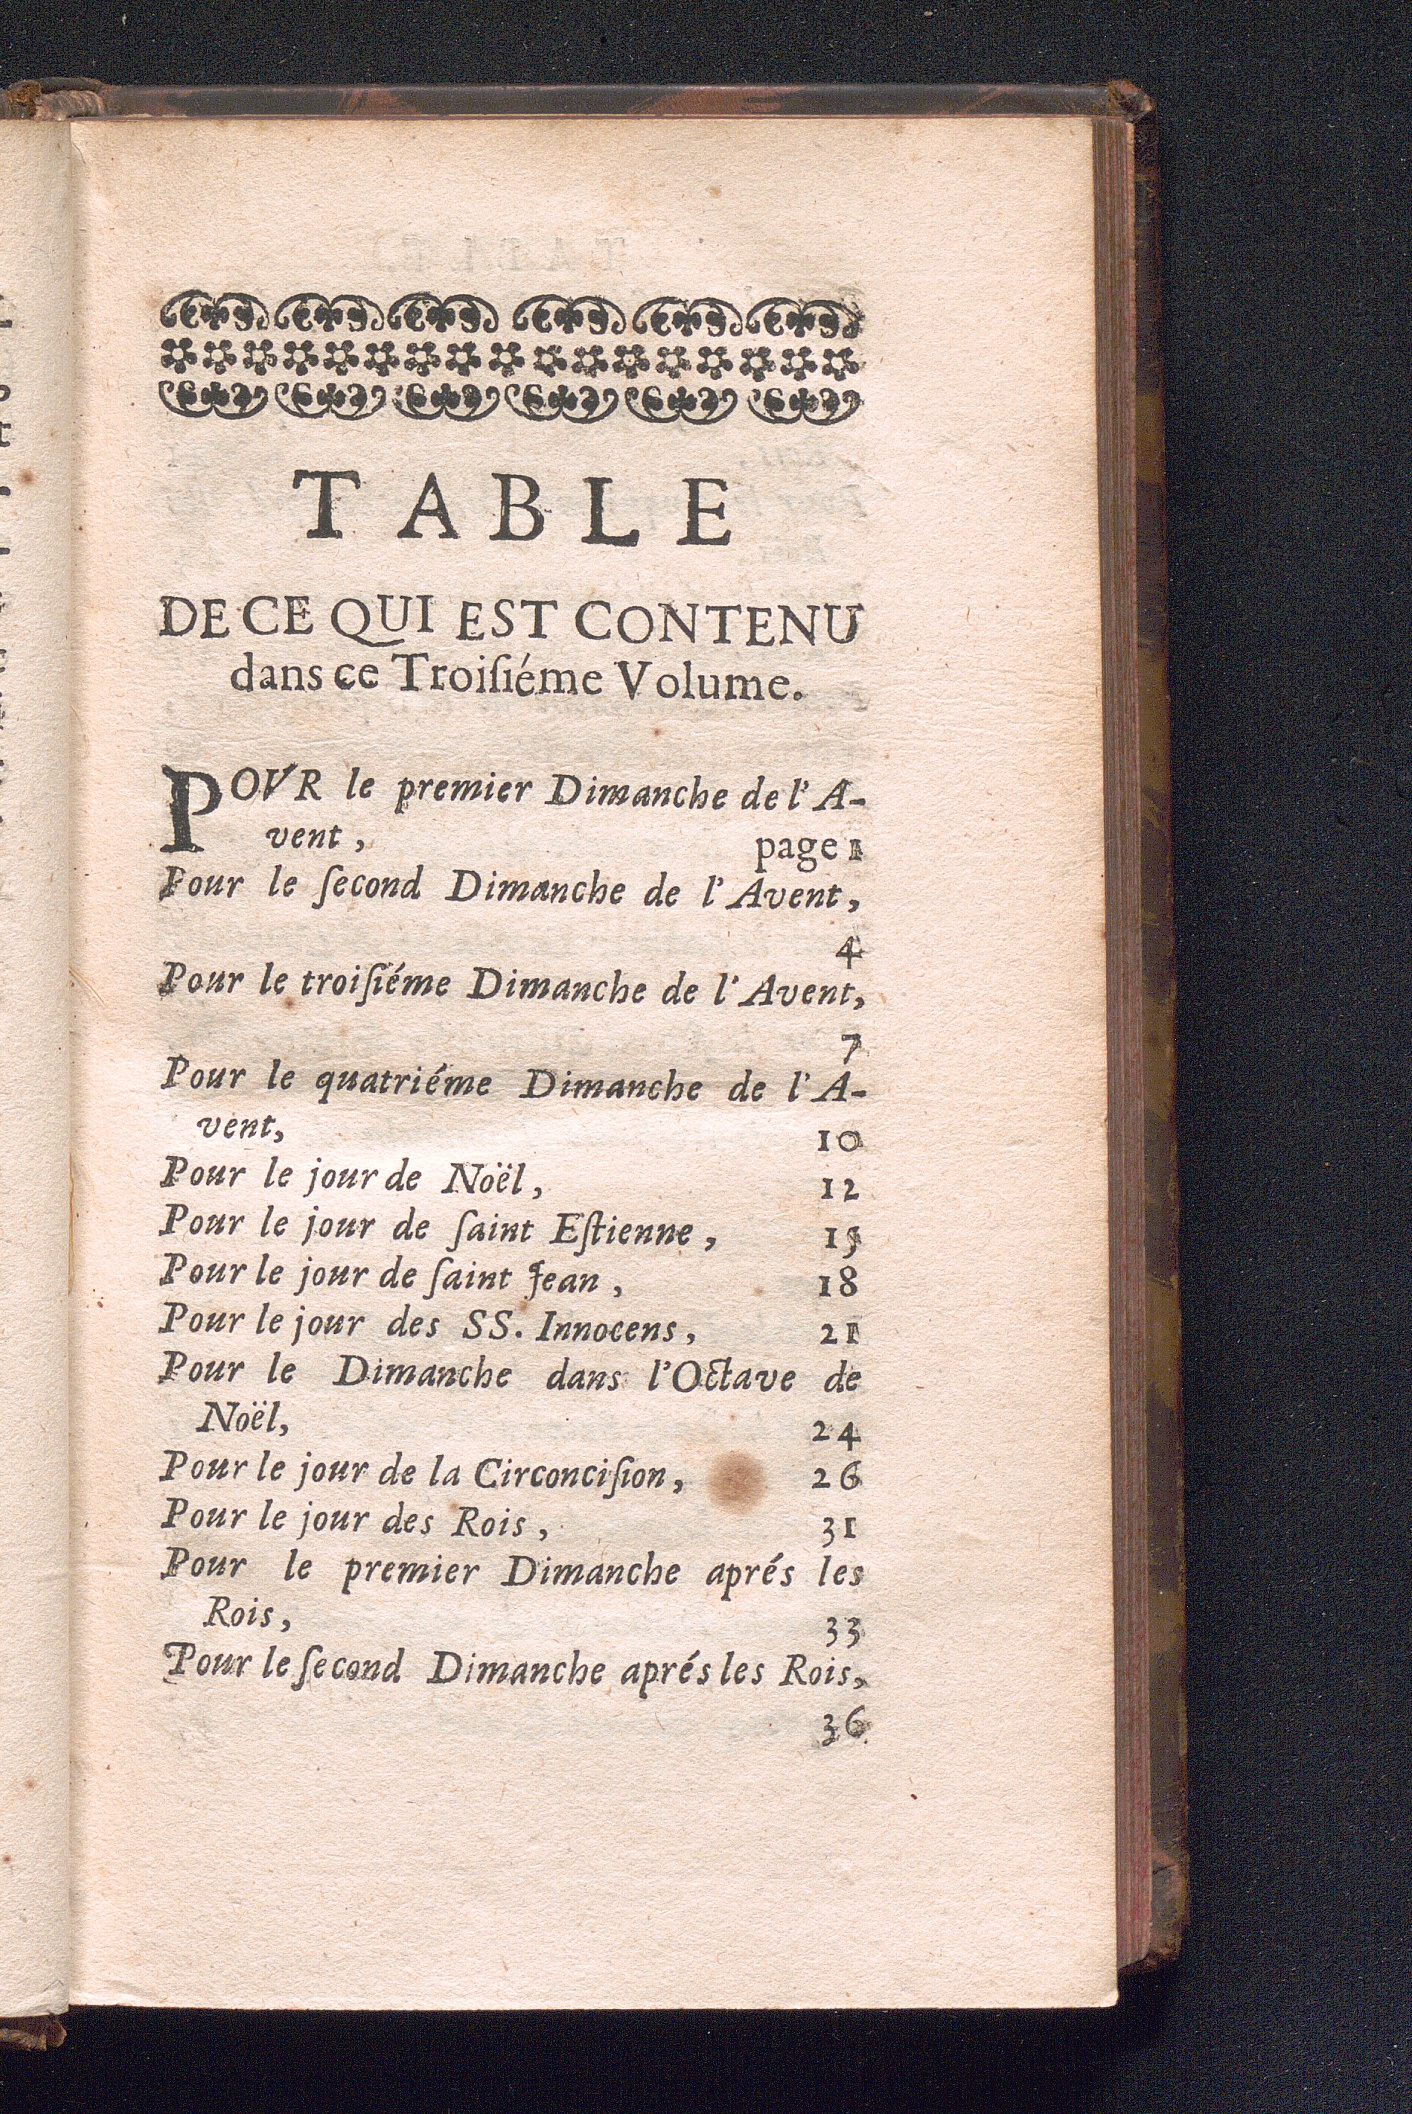 TABLE
DE CE QUI EST CONTENU
dans ce Troiſiéme Volume.
POVR le premier Dimanche de l'A-
vent, page 1
Pour le ſecond Dimanche de l'Avent,
4
Pour le troiſiéme Dimanche de l'Avent,
7
Pour le quatriéme Dimanche de l'A-
vent, 10
Pour le jour de Noël, 12
Pour le jour de ſaint Eſtienne, 15
Pour le jour de ſaint Jean, 18
Pour le jour des SS. Innocens, 21
Pour le Dimanche dans l'Octave de
Noël, 24
Pour le jour de la Circonciſion, 26
Pour le jour des Rois, 31
Pour le premier Dimanche aprés les
Rois, 33
Pour le ſecond Dimanche aprés les Rois,
36